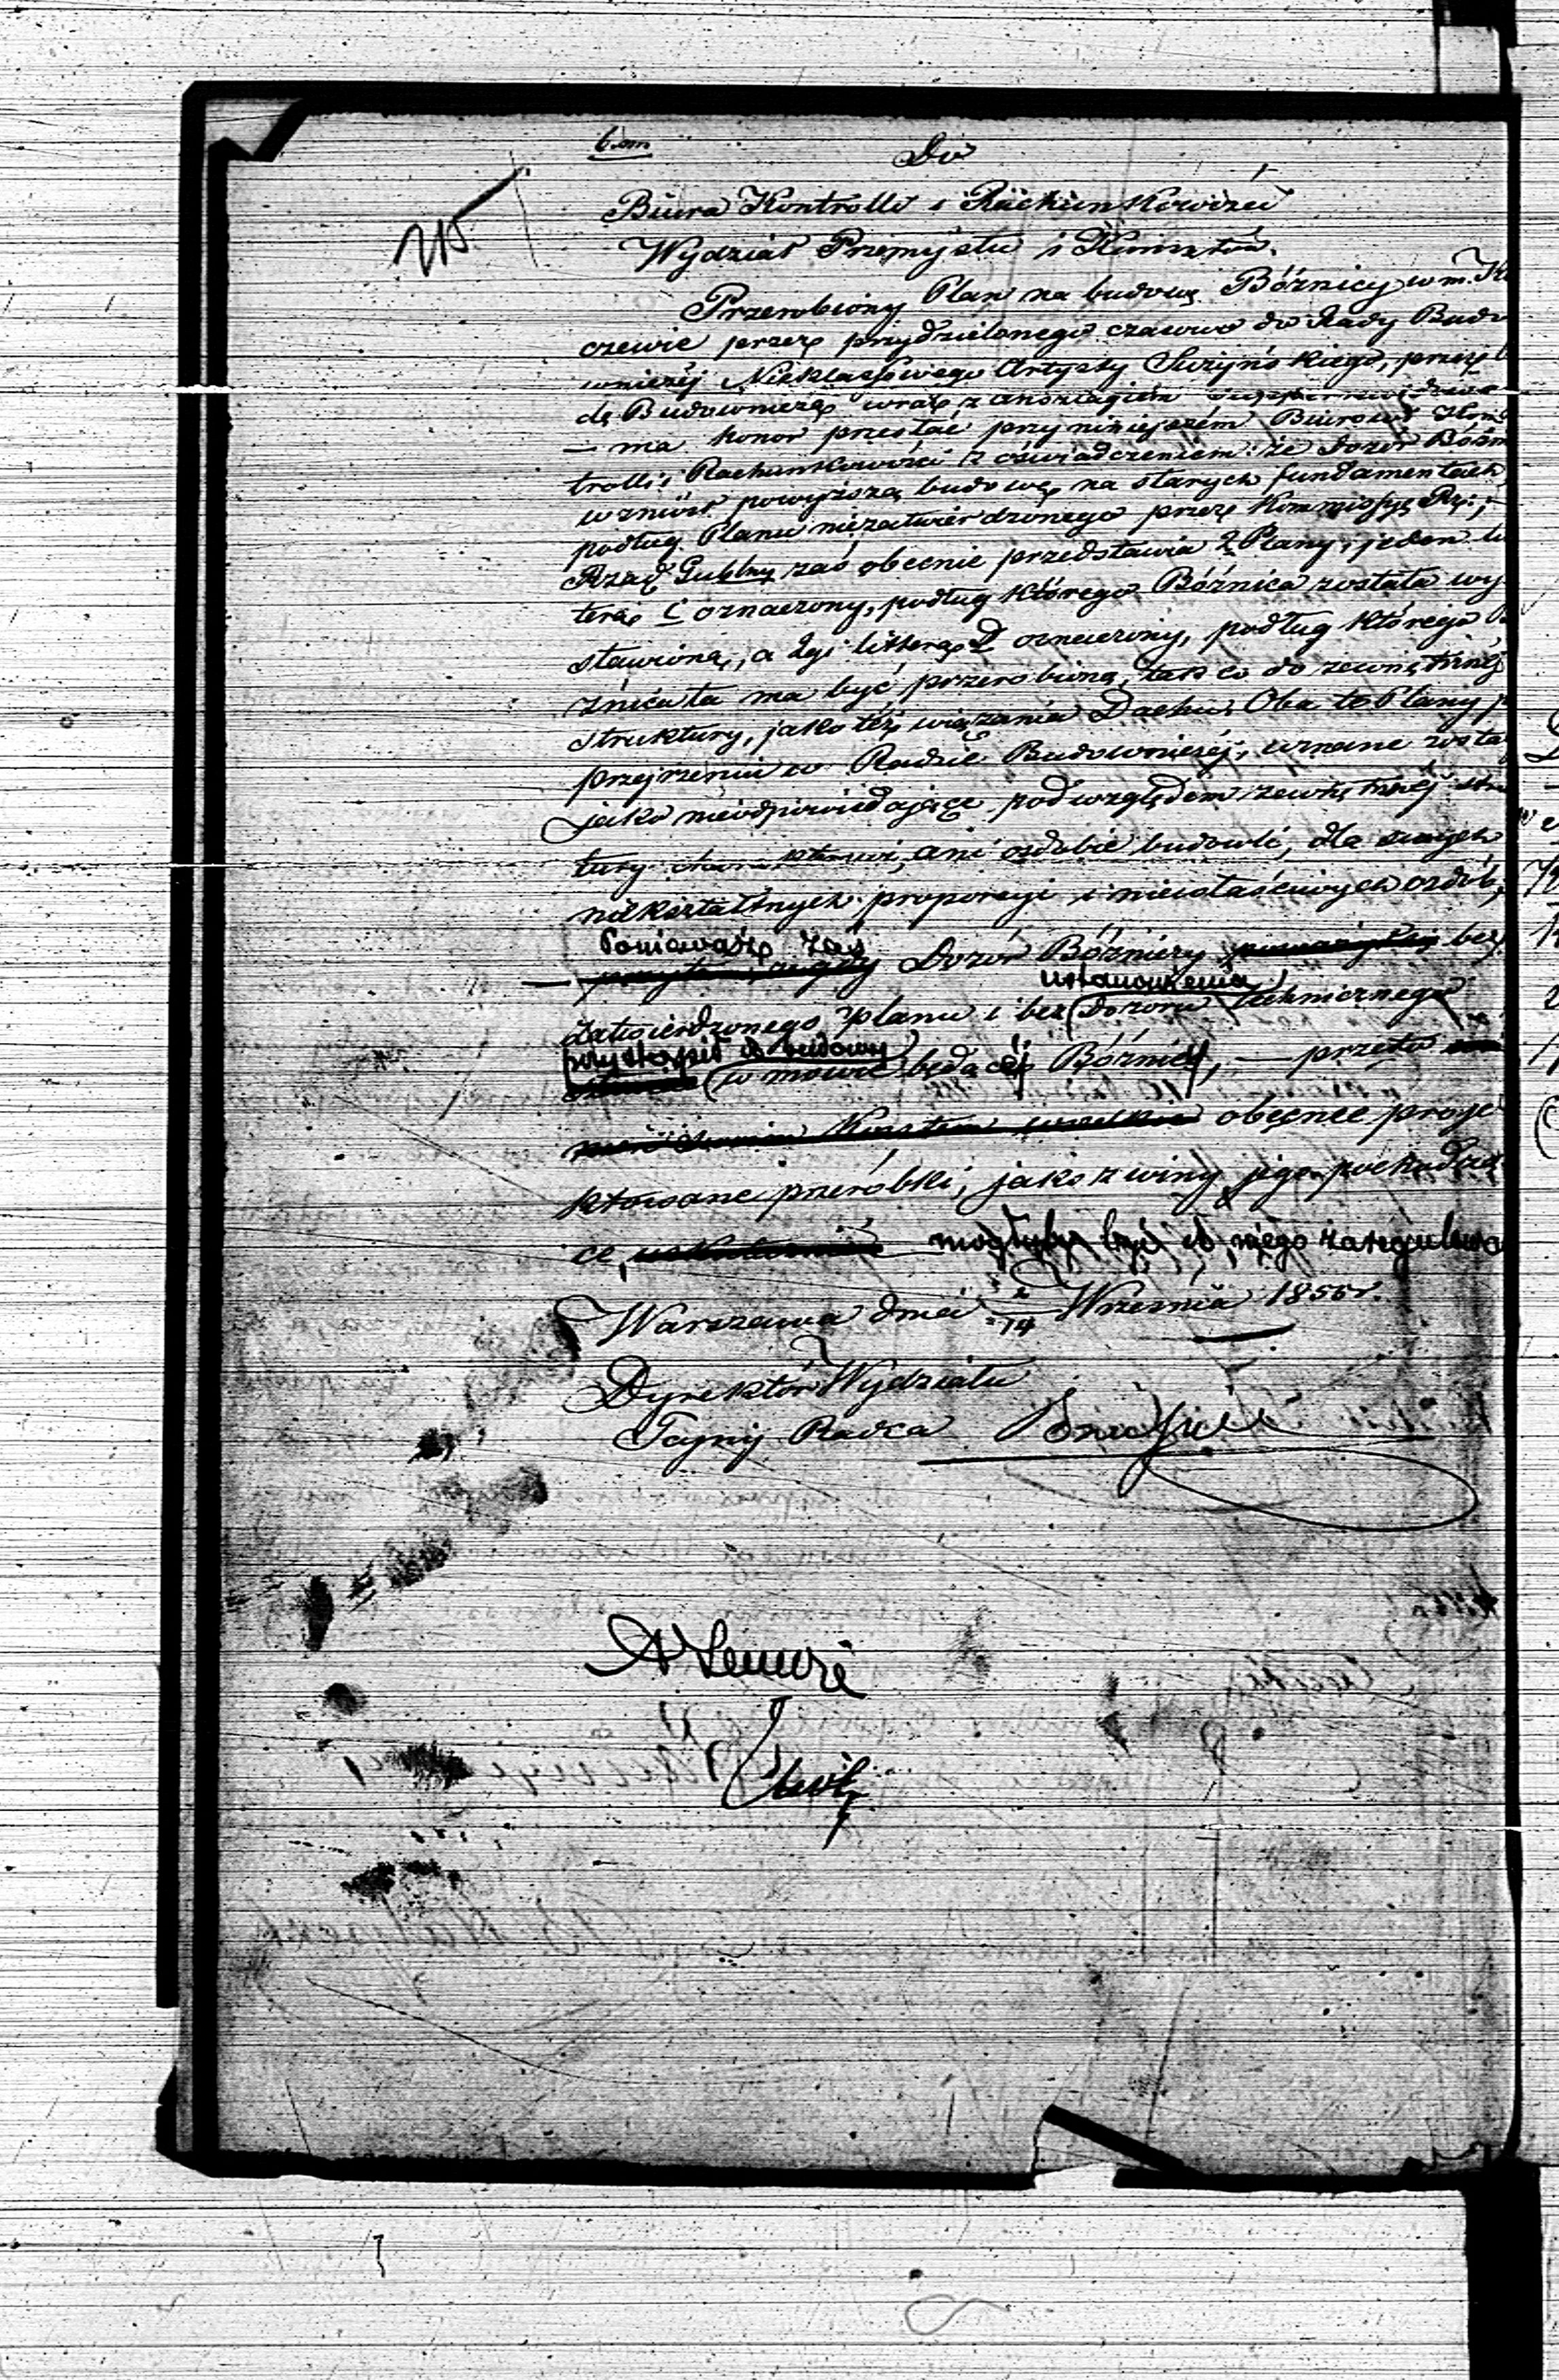 Do
Biura Kontrolli i Rachunkowości
Wydział Przemysłu i Kunsztów.
Przerobiony Plan na budowę Bóżnicy w m.
czewie przez przydzielonego czasowo do Rady Budo
wniczéj Nieklassowego Artysty Suzyńskiego, przez
dę Budowniczą wraz z
— ma honor przesłać przy niniejszém Biurowi Kon
trolli i Rachunkowości z oświadczeniem: że Dozór Bóżn
wzniósł powyższą budowę na starych fundamentach,
podług Planu niezatwierdzonego przez Kommissyę Rz:;
Rząd Gubny zaś obecnie przedstawia 2 Plany, jeden li
terą C oznaczony, podług którego Bóżnica została wy
stawioną, a 2gi litterą D oznaczony, podług którego B
żnica ta ma być przerobioną, tak co do zewnętrznéj
struktury, jako też wiązania Dachu. Oba te Plany p
przejrzeniu w Radzie Budowniczéj, uznane zosta
jako nieodpowiadające pod względem zewnętrznéj stru
tury charakterowi, ani ozdobie budowli, dla swych
niekształtnych proporcyi i niewłaściwych ozdób,
Ponieważ zaś
Dozór Bóżniczy bez
ustanowienia
zatwierdzonego planu i bez Dozoru technicznego
przystąpił do budowy
w mowie będącéj Bóżnicy, — przeto
obecnie proje
ktowane przeróbki, jako z winy jego pochodzą
ce, mogłyby być od niego zaregulowa
Warszawa dnia 2/14 Września 1855 r.
Dyrektór Wydziału
Tajny Radca